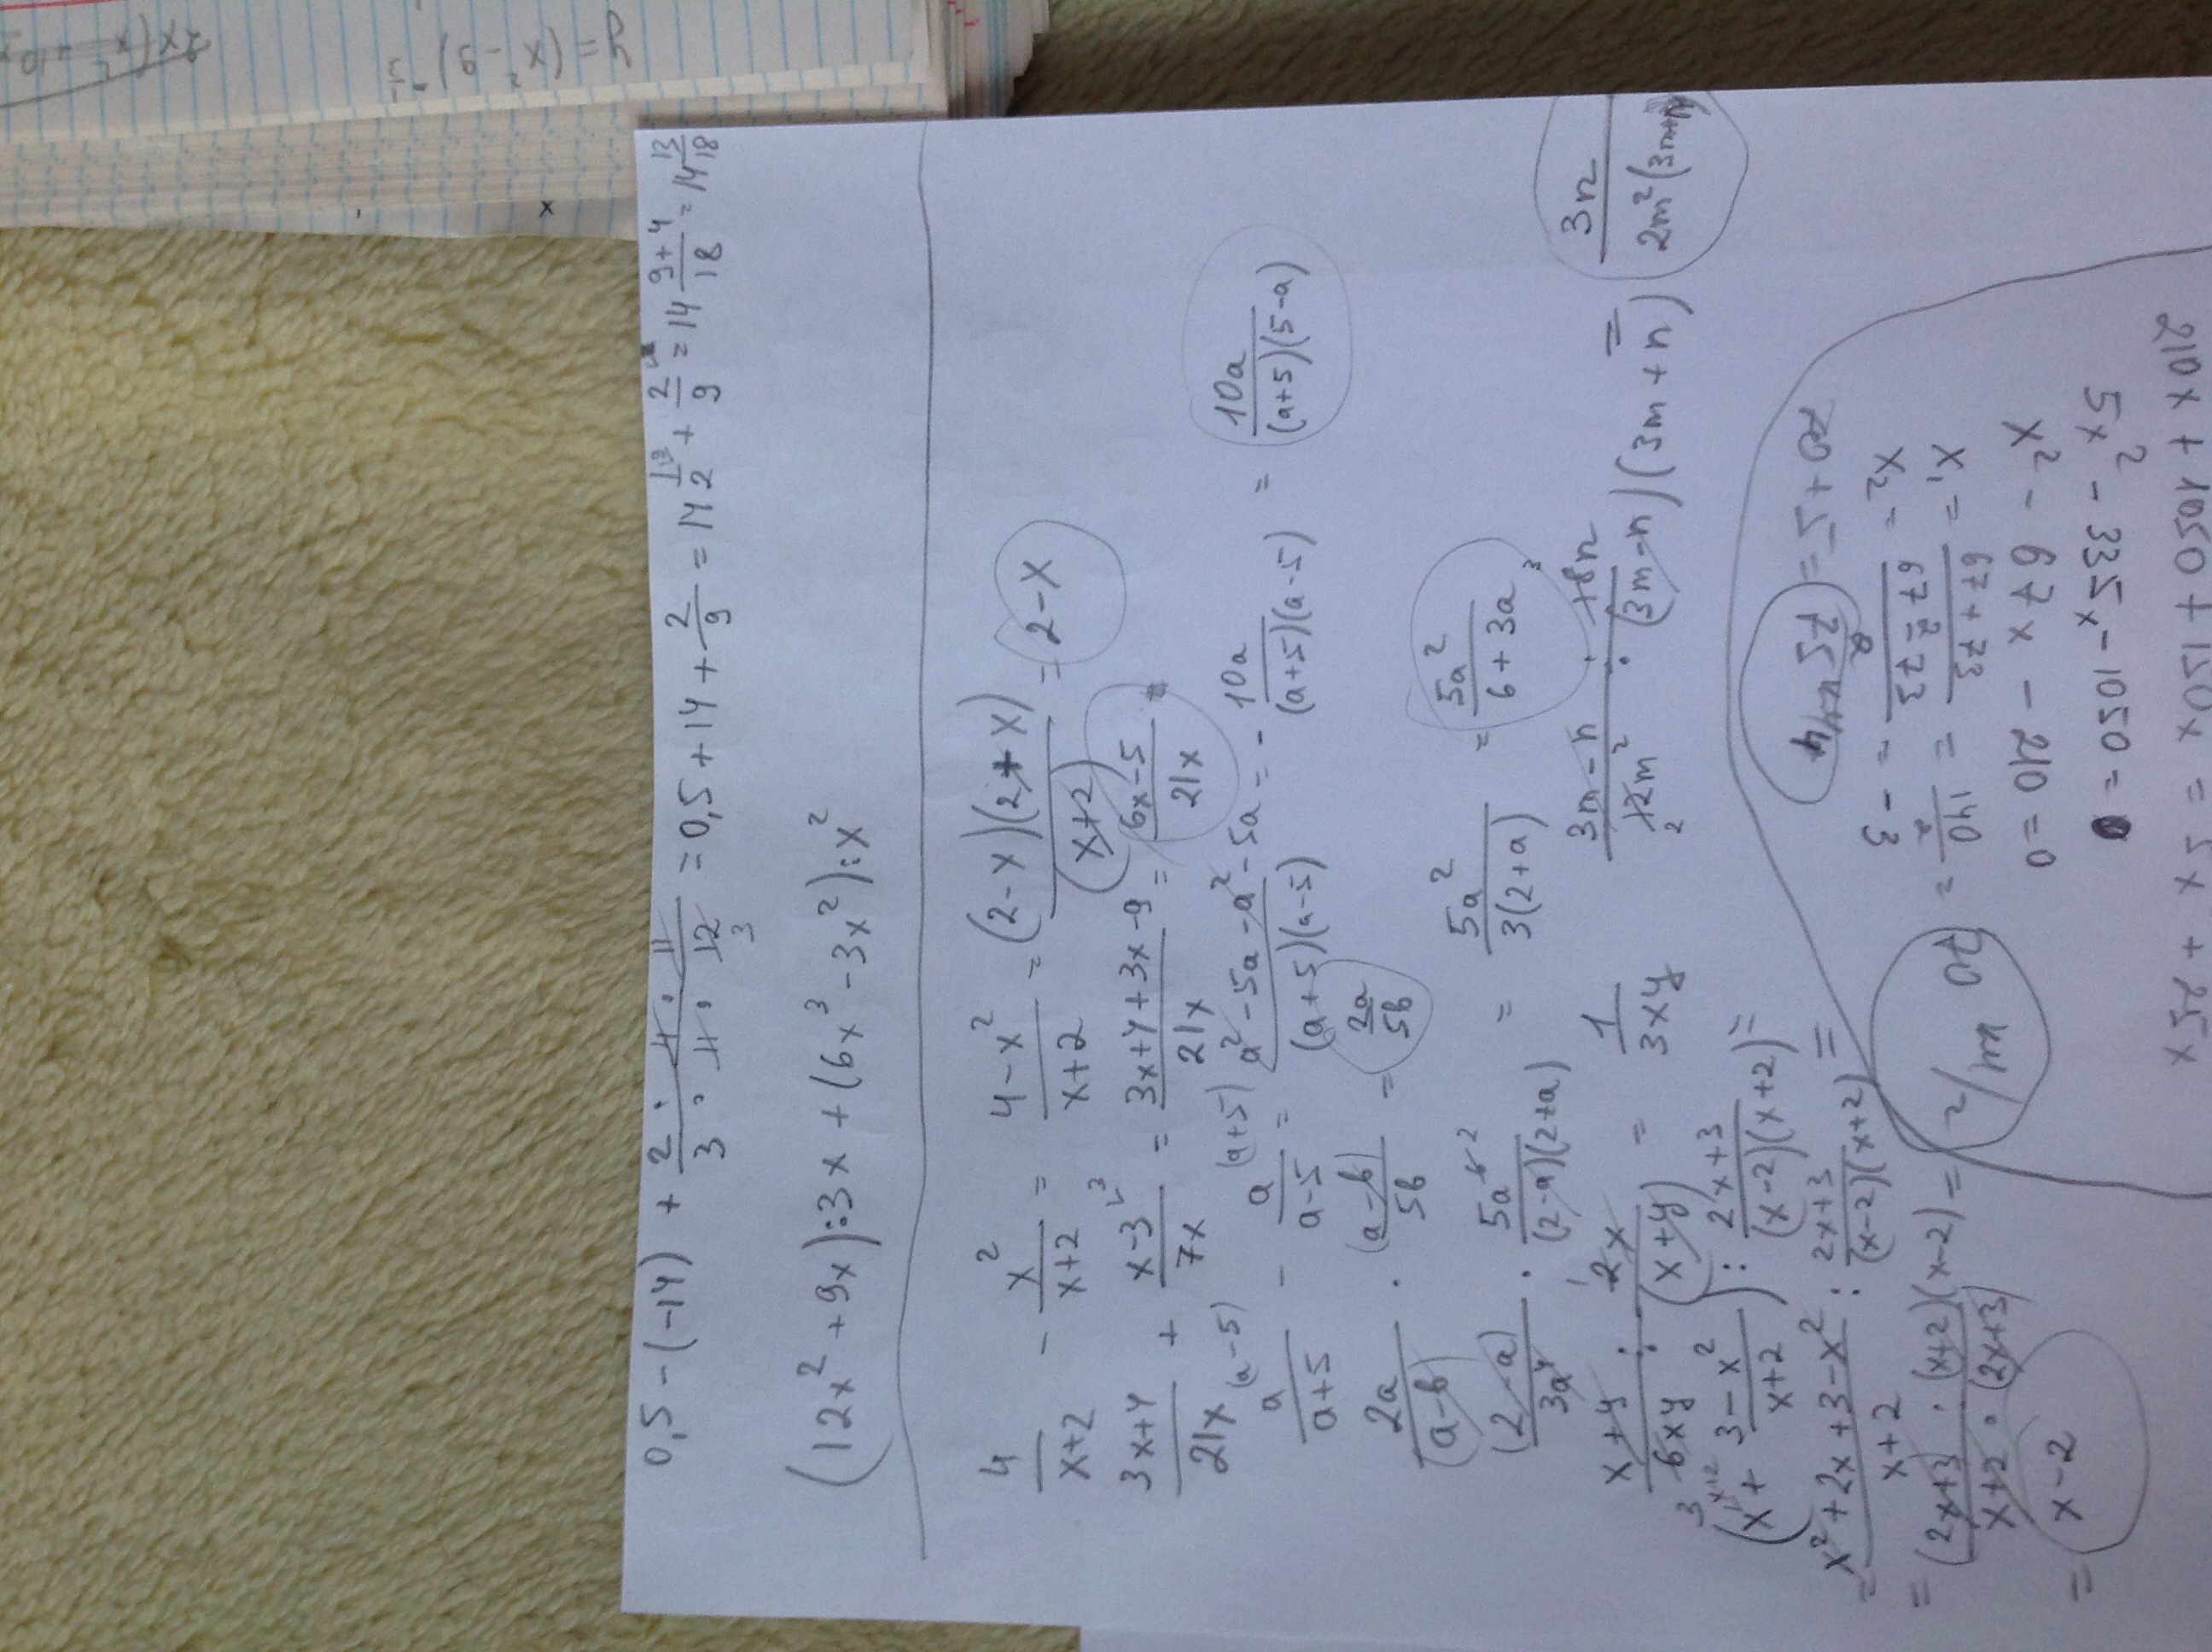 0,5 - (-14) + 2/3 · 4·11/11·12 = 0,5 + 14 + 2/9 = 14 1/2 + 2/9 = 14 (9+4)/18 = 14 13/18
(12x² + 9x) : 3x + (6x³ - 3x²) : x²
4/(x+2) - x²/(x+2) = (4-x²)/(x+2) = (2-x)(2+x)/(x+2) = 2-x
(3x+4)/21x + (x-3)/7x = (3x+4+3x-9)/21x = (6x-5)/21x
a/(a+5) (a-5) - a/(a-5) (a+5) = (a²-5a-a²-5a)/((a+5)(a-5)) = - 10a/((a+5)(a-5)) = 10a/((a+5)(5-a))
2a/(a-b) · (a-b)/5b = 2a/5b
(2-a)/3a⁴ · 5a⁶/((2-a)(2+a)) = 5a²/(3(2+a)) = 5a²/(6+3a)
(x+y)/6xy · 2x/(x+y) = 1/3xy
(3m-n)/12m² · 18n/((3m-n)(3m+n)) = 3n/(2m²(3m+n))
(x + (3-x²)/(x+2)) : (2x+3)/((x-2)(x+2)) =
= (x²+2x+3-x²)/(x+2) : (2x+3)/((x-2)(x+2)) =
= (2x+3)·(x+2)(x-2)/(x+2)·(2x+3) =
= x-2
210x + 1050 + 150x = 5x² + 25x
5x² - 335x - 1050 = 0
x² - 67x - 210 = 0
x₁ = (67+73)/2 = 140/2 = 70
x₂ = (67-73)/2 = -3
70+5 = 75
y = (x² - 9)